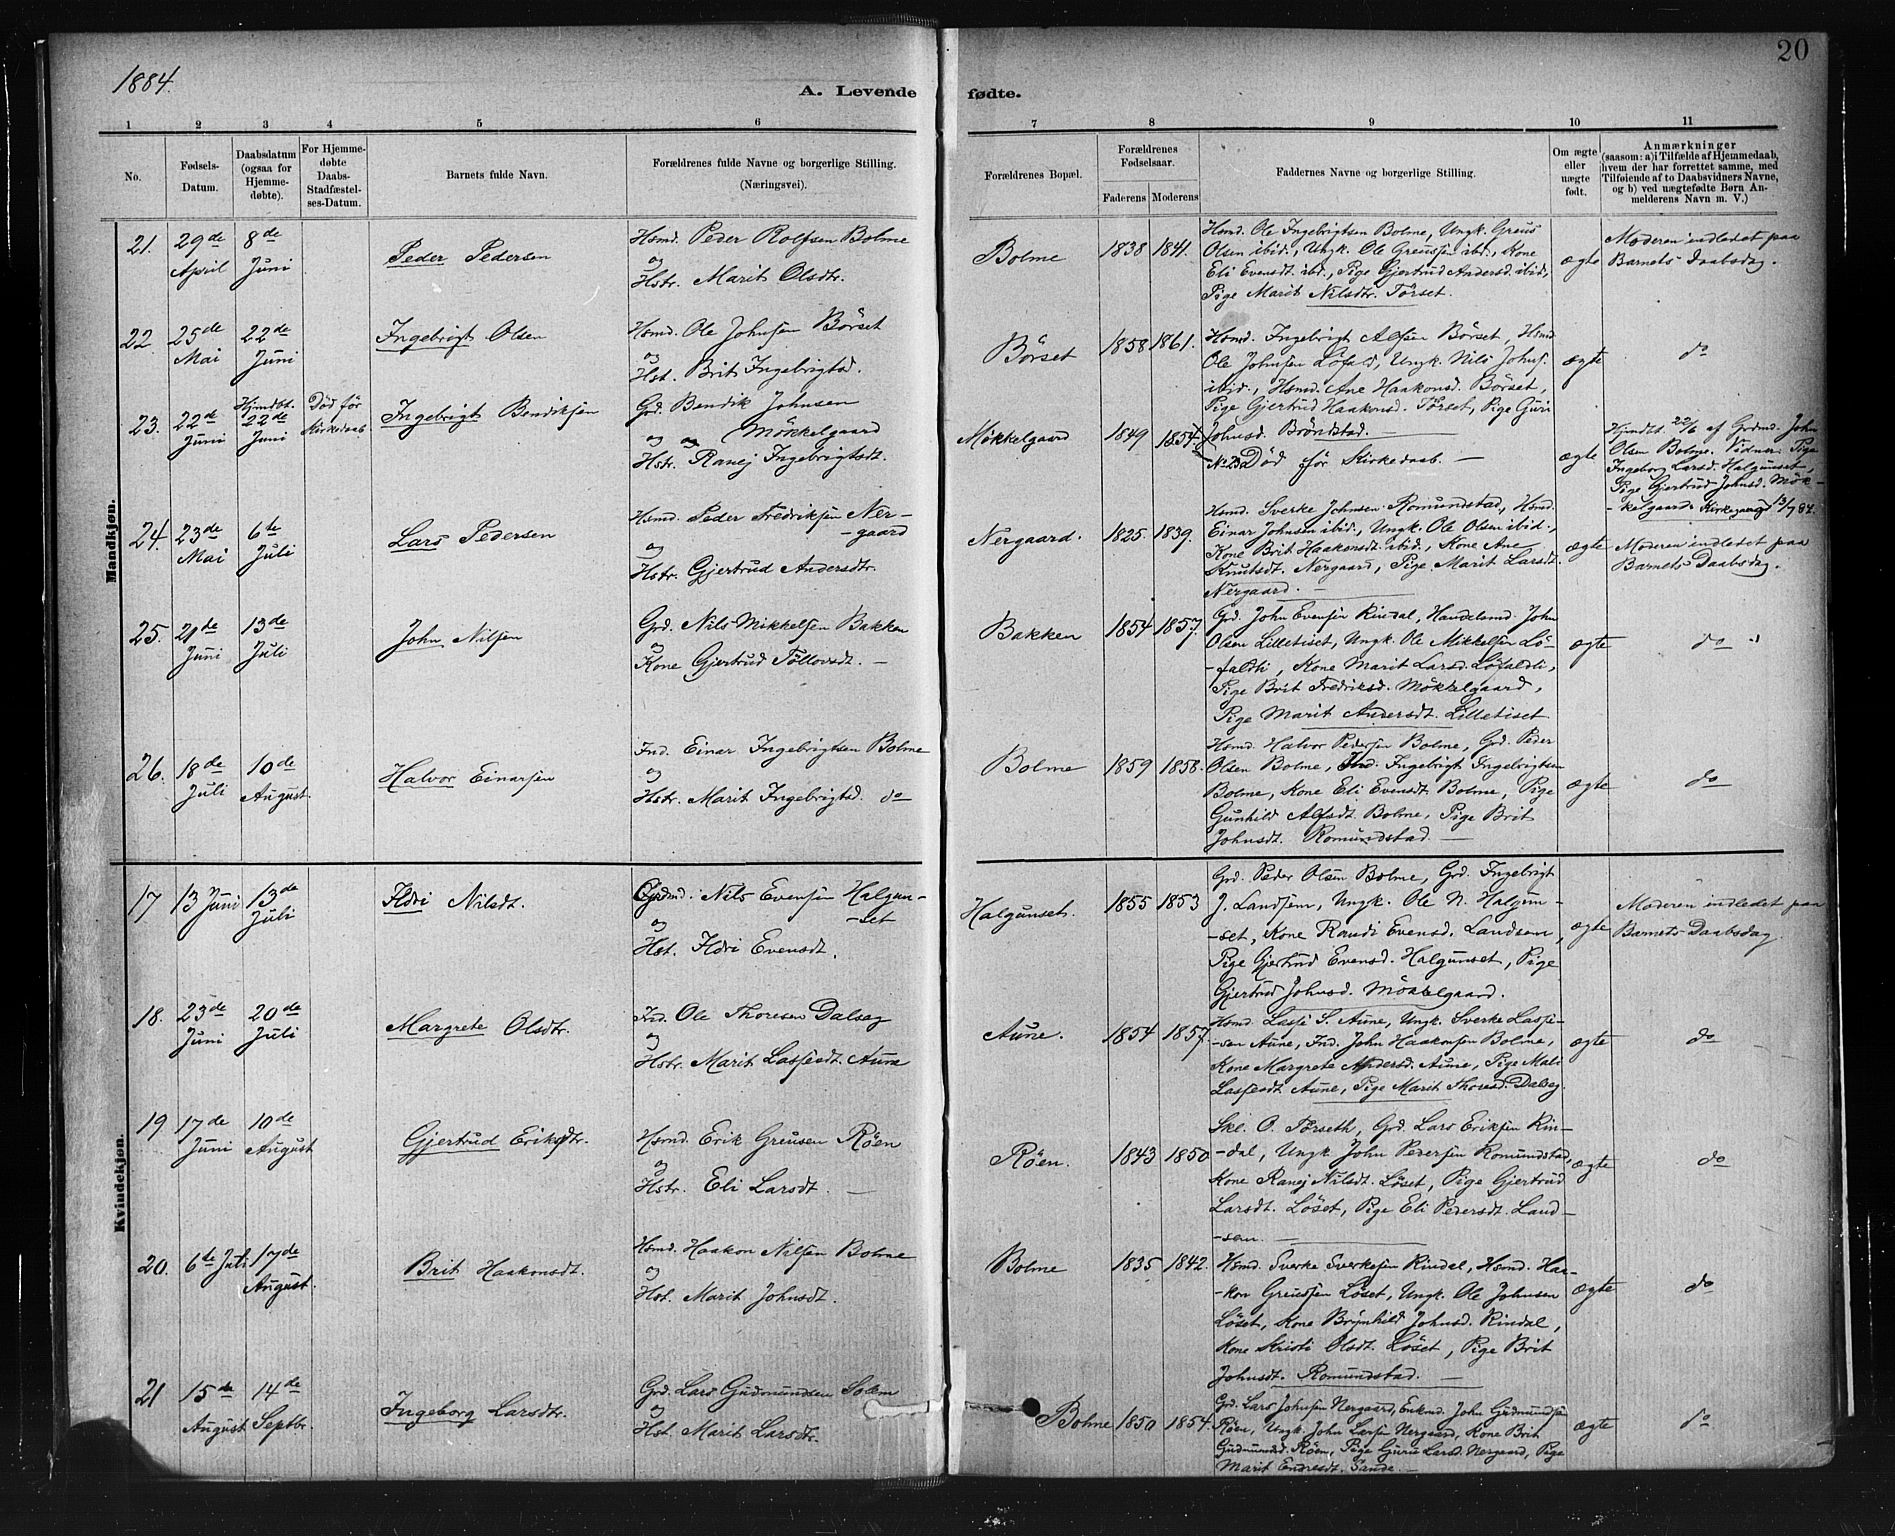 20
1884.
A. Levende fødte.
1 2 3 4 5 6 7 8 9 10 11
No.
Fødsels-
Datum.
Daabsdatum
(ogsaa for
Hjemme-
døbte).
For Hjemme-
døbte
Daabs-
Stadfæstel-
ses-Datum.
Barnets fulde Navn.
Forældrenes fulde Navne og borgerlige Stilling.
(Næringsvei).
Forældrenes Bopæl.
Forældrenes
Fødselsaar.
Faderens Moderens
Faddernes Navne og borgerlige Stilling.
Om ægte
eller
uægte
født.
Anmærkninger
(saasom: a) i Tilfælde af Hjemmedaab,
hvem der har forrettet samme, med
Tilføiende af to Daabsvidners Navne,
og b) ved uægtefødte Børn An-
melderens Navn m. V.)
Mandkjøn.
21. 29de April
8de Juni
Peder Pedersen
Hsmd. Peder Rolfsen Bolme
og
Hstr. Marit Olsdtr.
Bolme
1838 1841.
Hsmd. Ole Ingebrigtsen Bolme, Ungk. Greus
Olsen ibid., Ungk. Ole Greussen ibd., Kone
Eli Evensdt. ibd., Pige Gjertrud Andersd. ibid.,
Pige Marit Nilsdtr. Törset.
ægte
Moderen indledet paa
Barnets Daabsdag.
22. 25de Mai
22de Juni
Ingebrigt Olsen
Hsmd. Ole Johnsen Börset
og
Hst. Brit Ingebrigtsd.
Börset
1858 1861.
Hsmd. Ingebrigt Alfsen Börset, Hsmd
Ole Johnsen Löfald, Ungk. Nils Johns.
ibid., Hsmd. Ane Haakonsd. Börset,
Pige Gjertrud Haakonsd. Törset, Pige Guri
Johnsd. Bröndstad.
ægte
do
23. 22de Juni
Hjmdbt. 22de Juni
Död för Kirkedaab
Ingebrigt Bendiksen
Grd. Bendik Johnsen
og Mökkelgaard
Hstr. Ranej Ingebrigtsdt.
Mökkelgaard
1849 1854.
No 23 Död för Kirkedaab.
ægte
Hjmdbt. 22/6 af Grdmd. John
Olsen Bolme. Vidner: Pige
Ingeborg Larsd. Halgunset,
Pige Gjertrud Johnsd. Mök-
kelgaard. Kirkegang 13/7 84.
24. 23de Mai
6te Juli
Lars Pedersen
Hsmd. Peder Fredriksen Ner-
gaard
og
Hstr. Gjertrud Andersdtr.
Nergaard.
1825. 1839.
Hsmd. Sverke Johnsen Romundstad, Hsmd.
Einar Johnsen ibid., Ungk. Ole Olsen ibid.,
Kone Brit Haakonsdt. ibid., Kone Ane
Knutsdt. Nergaard, Pige Marit Larsdt.
Nergaard.
ægte
Moderen indledet paa
Barnets Daabsdag.
25. 21de Juni
13de Juli
John Nilsen
Grd. Nils Mikkelsen Bakken
og
Kone Gjertrud Tollovsdt.
Bakken
1854 1857.
Grd. John Evensen Rindal, Handelsmd. John
Olsen Lilletiset, Ungk. Ole Mikkelsen Lö-
-faldli, Kone Marit Larsd. Löfaldli,
Pige Brit Fredriksd. Mökkelgaard,
Pige Marit Andersdt. Lilletiset.
ægte
do
26. 18de Juli
10de August.
Halvor Einarsen
Ind. Einar Ingebrigtsen Bolme
og
Hstr. Marit Ingebrigtsd. do
Bolme
1859 1858.
Hsmd. Halvor Pedersen Bolme, Grd. Peder
Olsen Bolme, Ind. Ingebrigt Ingebrigtsen
Bolme, Kone Eli Evensdt. Bolme, Pige
Gunhild Alfsdt. Bolme, Pige Brit
Johnsdt. Romundstad.
ægte
do
Kvindekjøn.
17 13 Juni
13de Juli
Ildri Nilsdt.
Grdmd. Nils Evensen Halgun-
-set
og
Hst. Ildri Evensdt.
Halgunset.
1855 1853
Grd. Peder Olsen Bolme, Grd. Ingebrigt
J. Landsem, Ungk. Ole N. Halgun-
-set, Kone Randi Evensd. Landsem,
Pige Gjertrud Evensd. Halgunset, Pige
Gjertrud Johnsd. Mökkelgaard.
ægte
Moderen indledet paa
Barnets Daabsdag
18. 23de Juni
20de Juli
Margrete Olsdtr.
Ind. Ole Thoresen Dalseg
og
Hstr. Marit Lassesdt. Aune
Aune.
1854 1857.
Hsmd. Lasse S. Aune, Ungk. Sverke Lasse-
-sen Aune, Ind. John Haakonsen Bolme,
Kone Margrete Andersd. Aune, Pige Mali
Lassesdt. Aune, Pige Marit Thoresd. Dalseg.
ægte
do
19 17de Juni
10de August
Gjertrud Eriksdtr.
Hsmd. Erik Greusen Röen
og
Hstr. Eli Larsdt.
Röen.
1843 1850
Skl. O. Törseth, Grd. Lars Eriksen Rin-
-dal, Ungk. John Pedersen Romundstad,
Kone Ranej Nilsdt. Löset, Pige Gjertrud
Larsdt. Löset, Pige Eli Pedersdt. Land-
-sem.
ægte
do
20. 6te Juli
17de August.
Brit Haakonsdt.
Hsmd. Haakon Nilsen Bolme
og
Hst. Marit Johnsdt.
Bolme
1835 1842.
Hsmd. Sverke Sverkesen Rindal, Hsmd. Haa-
-kon Greussen Löset, Ungk. Ole Johnsen
Löset, Kone Brynhild Johnsd. Rindal,
Kone Kristi Olsdt. Löset, Pige Brit
Johnsdt. Romundstad.
ægte
do
21 15de August
14de Septbr.
Ingeborg Larsdtr.
Grd. Lars Gudmundsen Solem
og
Hst. Marit Larsdtr.
Bolme
1850 1854.
Grd. Lars Johnsen Nergaard, Enkmd. John Gudmundsen
Röen, Ungk. John Larsen Nergaard, Kone Brit
Gudmundsd. Röen, Pige Guru Larsd. Nergaard, Pige
Marit Endresdt. Sande.
ægte
do